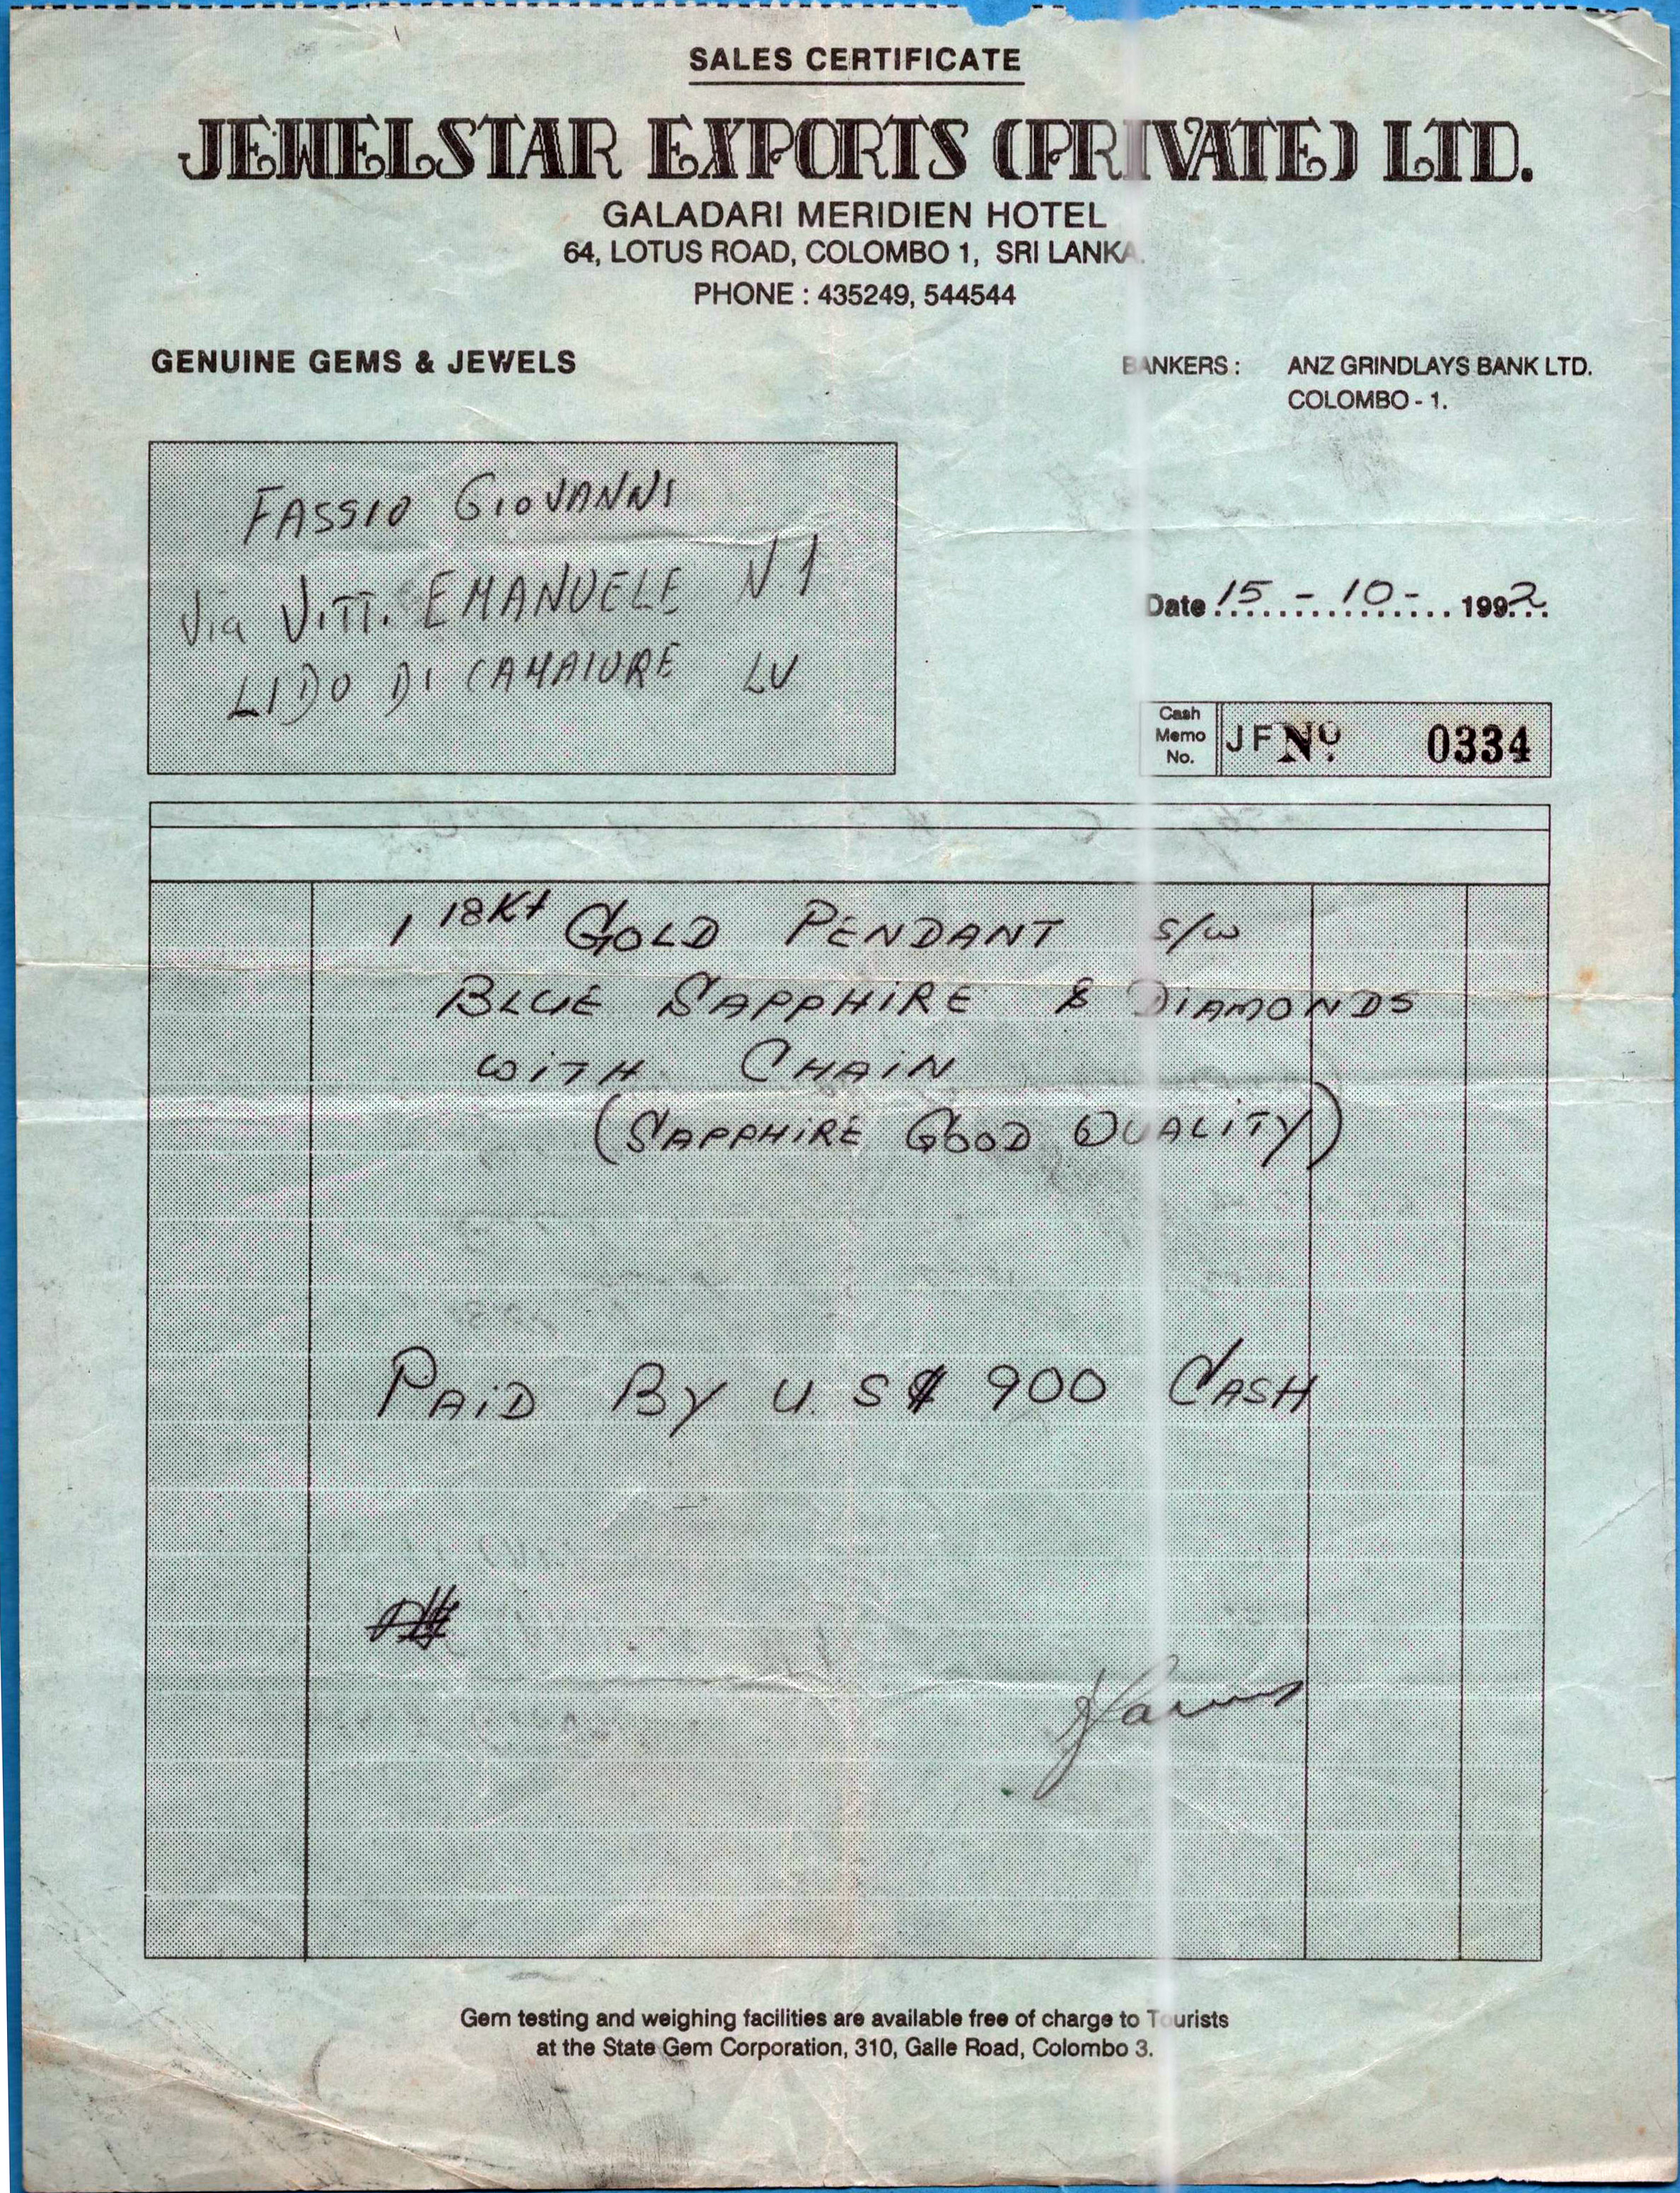 SALES CERTIFICATE
JEWELSTAR EXPORTS (PRIVATE) LTD.
GALADARI MERIDIEN HOTEL
64, LOTUS ROAD, COLOMBO 1, SRI LANKA.
PHONE : 435249, 544544
GENUINE GEMS & JEWELS
BANKERS : ANZ GRINDLAYS BANK LTD.
COLOMBO - 1.
FASSIO GIOVANNI
Via VITT. EMANUELE N 1
LIDO DI CAMAIORE LU
Date 15 - 10 - 1992
Cash Memo No. JF No. 0334
1 18Kt GOLD PENDANT s/w
BLUE SAPPHIRE & DIAMONDS
WITH CHAIN
(SAPPHIRE GOOD QUALITY)
PAID BY U.S$ 900 CASH
Gem testing and weighing facilities are available free of charge to Tourists
at the State Gem Corporation, 310, Galle Road, Colombo 3.